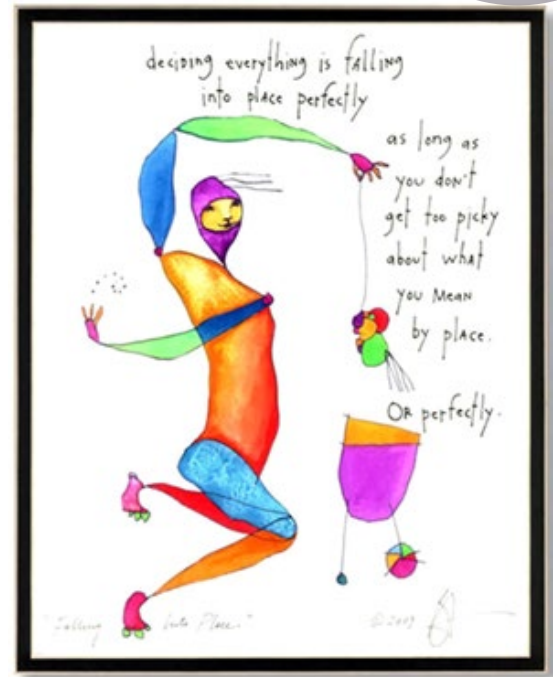 deciding everything is falling
into place perfectly
as long as
you don't
get too picky
about what
you mean
by place.
OR perfectly.
"Falling Into Place."
© 2009